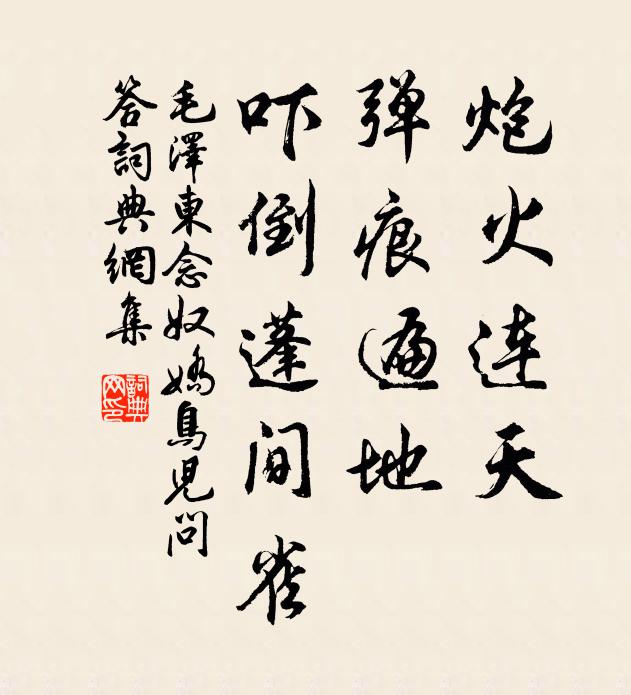 炮火连天
弹痕遍地
吓倒蓬间雀
毛澤東念奴嬌鳥児問
答詞典網集
詞典网印